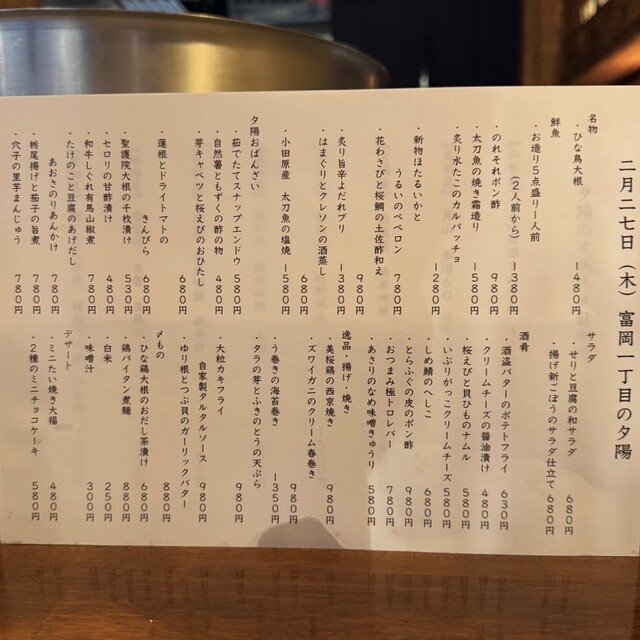 二月二七日（木）富岡一丁目の夕陽
名物
・ひな鳥大根 一四八〇円
鮮魚
・お造り５点盛り一人前
（２人前から）一三八〇円
・のれそれポン酢 ９８０円
・太刀魚の焼き霜造り 一五八〇円
・炙り水たこのカルパッチョ
一二八〇円
・新物ほたるいかと
うるいのペペロン ７８０円
・花わさびと桜鯛の土佐酢和え
９８０円
・炙り旨辛よだれブリ 一三八〇円
・はまぐりとクレソンの酒蒸し
６８０円
・小田原産 太刀魚の塩焼
一五八０円
夕陽おばんざい
・茹でたてスナップエンドウ ５８０円
・自然薯ともずくの酢の物 ４８０円
・芽キャベツと桜えびのおひたし
６８０円
・蓮根とドライトマトの
きんぴら ６８０円
・聖護院大根の千枚漬け ５３０円
・セロリの甘酢漬け ４８０円
・和牛しぐれ有馬山椒煮 ７８０円
・たけのこと豆腐のあげだし
あおさのりあんかけ ７８０円
・栃尾揚げと茄子の旨煮 ７８０円
・穴子の里芋まんじゅう ７８０円
サラダ
・せりと豆腐の和サラダ ６８０円
・揚げ新ごぼうのサラダ仕立て ６８０円
酒肴
・酒盗バターのポテトフライ ６３０円
・クリームチーズの醤油漬け ４８０円
・桜えびと貝ひものナムル ５８０円
・いぶりがっこクリームチーズ ５８０円
・しめ鯖のへしこ ６８０円
・とらふぐの皮のポン酢 ９８０円
・おつまみ極トロレバー ７８０円
・あさりのなめ味噌きゅうり ５８０円
逸品・揚げ・焼き
・美桜鶏の西京焼き ９８０円
・ズワイガニのクリーム春巻き
９８０円
・う巻きの海苔巻き 一三五０円
・タラの芽とふきのとうの天ぷら
９８０円
・大粒カキフライ
自家製タルタルソース ９８０円
・ゆり根とつぶ貝のガーリックバター
８８０円
〆もの
・ひな鶏大根のおだし茶漬け ６８０円
・鶏パイタン煮麺 ８８０円
・白米 ２５０円
・味噌汁 ３００円
デザート
・ミニたい焼き大福 ４８０円
・２種のミニチョコケーキ ５８０円